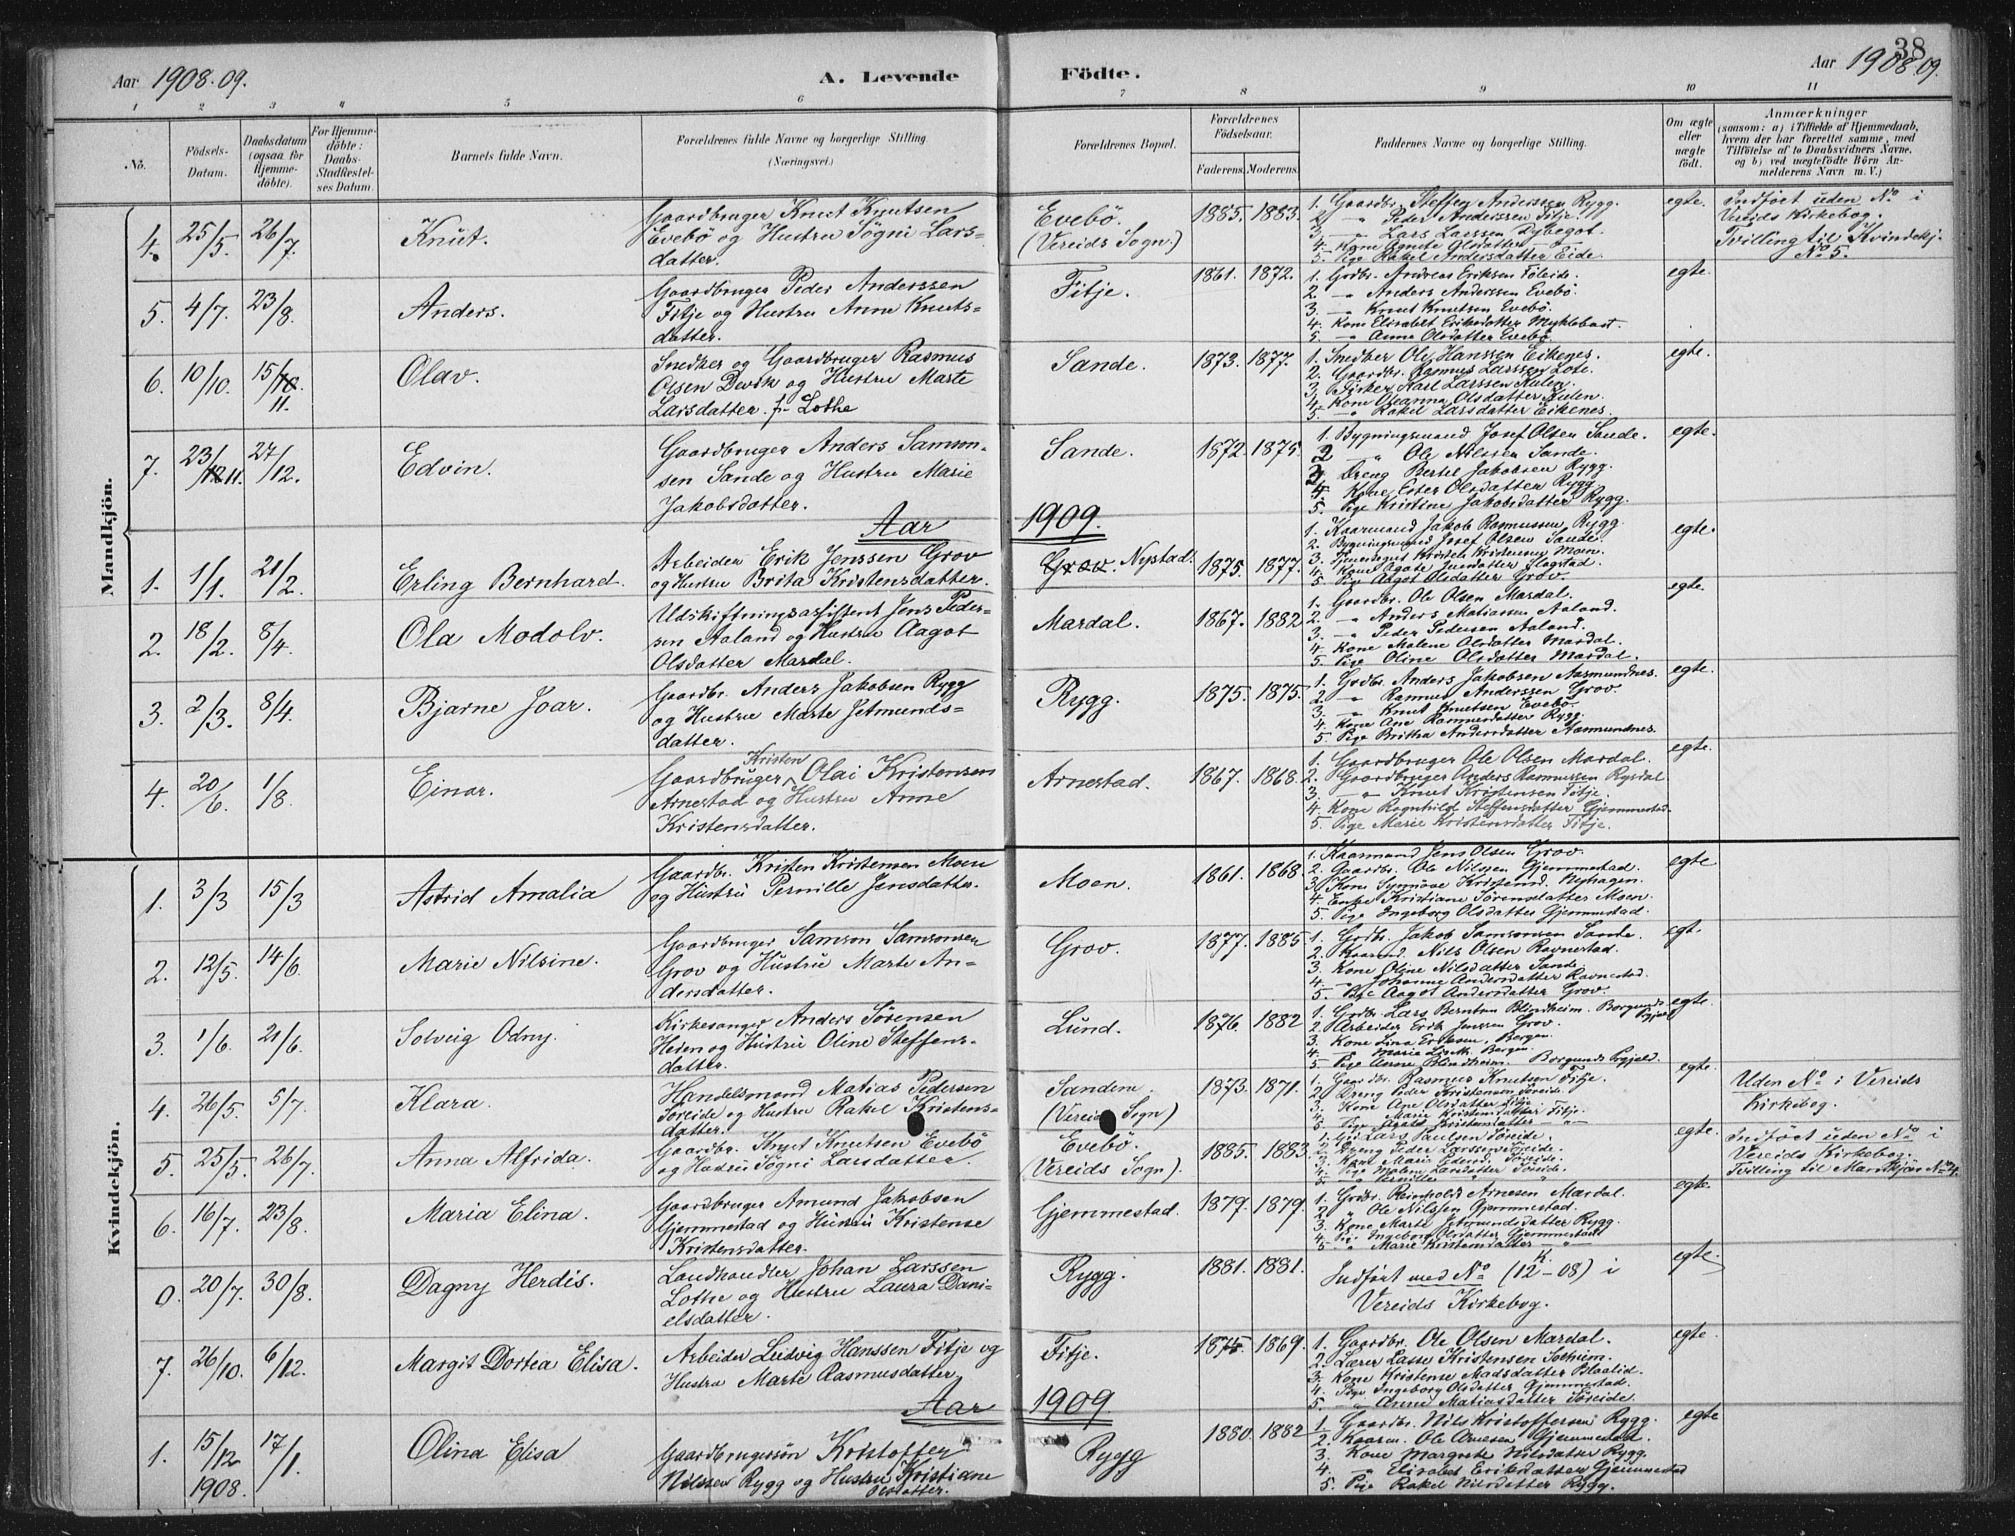 38
Aar 1908.09.
A. Levende Födte.
Aar 1908.09.
1 2 3 4 5 6 7 8 9 10 11
No.
Födsels-
Datum.
Daabsdatum
(ogsaa for
Hjemme-
döbte).
For Hjemme-
döbte:
Daabs-
Stadfæstel-
ses Datum.
Barnets fulde Navn.
Forældrenes fulde Navne og borgerlige Stilling
(Næringsvei.)
Forældrenes Bopæl.
Forældrenes
Födselsaar.
Faderens. Moderens.
Faddernes Navne og borgerlige Stilling.
Om ægte
eller
uægte
födt.
Anmærkninger
(saasom: a) i Tilfælde af Hjemmedaab,
hvem der har forrettet samme, med
Tilföielse af to Daabsvidners Navne.
og b) ved uægtefödte Börn An-
melderens Navn m. V.)
Mandkjön.
4. 25/5. 26/7. Knut.
Gaardbruger Knut Knutsen
Evebö og Hustru Sögni Lars-
datter.
Evebö.
(Vereids Sogn.)
1885. 1883.
1. Gaardbr. Steffen Anderssen Rygg.
2. " Peder Anderssen Fitje.
3. " Lars Larssen Dybegot.
4. Kone Agnete Olsdatter
5. Pige Rakel Andersdatter Eide.
egte.
Indfört uden No i
Vereids Kirkebog.
Tvilling til Kvindekj.
No 5.
5. 4/7. 23/8. Anders.
Gaardbruger Peder Anderssen
Fitje og Hustru Anne Knuts-
datter.
Fitje.
1861. 1872.
1. Grdbr. Andreas Eriksen Föleide.
2. " Anders Anderssen Evebö.
3. " Knut Knutsen Evebö.
4. Kone Elisabet Eriksdatter Myklebust.
5. " Anna Olsdatter Evebö.
egte.
6. 10/10. 15/10. 11. Olav.
Snedker og Gaardbruger Rasmus
Olsen Devik og Hustru Marte
Larsdatter. f. Lothe
Sande.
1873. 1877.
1. Snedker Ole Hanssen Eikenes.
2. Gaardbr. Rasmus Larssen Lote.
3. Fisker Karl Larssen Hulen.
4. Kone Oleanna Olsdatter Hulen.
5. " Rakel Larsdatter Eikenes.
egte.
7. 23/12 11. 27/12. Edvin.
Gaardbruger Anders Samson-
sen Sande og Hustru Marie
Jakobsdatter.
Sande.
1872. 1875.
1. Bygningsmand Josef Olsen Sande.
2 " Ole Nilssen Sande.
3. Dreng Bertel Jakobsen Rygg.
4. Kone Ester Olsdatter Rygg.
5. Pige Kristine Jakobsdatter Rygg.
egte.
Aar 1909.
1. 1/1. 21/2. Erling Bernhard.
Arbeider Erik Jenssen Grov
og Hustru Brita Kristensdatter.
Grov Nystad.
1875. 1877.
1. Kaarmand Jakob Rasmussen Rygg.
2. Bygningsmand Josef Olsen Sande.
3. Kristen Kristensen Moen.
4. Kone Agate Flagstad.
5. Pige Aagot Olsdatter Grov.
egte.
2. 18/2. 8/4. Ola Modolv.
Udskiftningsassistent Jens Peder-
sen Aaland og Hustru Aagot
Olsdatter Mardal.
Mardal.
1867. 1882
1. Gaardbr. Ole Olsen Mardal.
2. " Anders Matiassen Aaland.
3. " Peder Pedersen Aaland.
4. Kone Malene Olsdatter Mardal.
5. Pige Oline Olsdatter Mardal.
egte.
3. 2/3. 8/4. Bjarne Joar.
Gaardbr. Anders Jakobsen Rygg
og Hustru Marte Jetmunds-
datter.
Rygg.
1875. 1875.
1. Grdbr. Anders Jakobsen Aasmundnes.
2. " Rasmus Anderssen Grov.
3. " Knut Knutsen Evebö.
4. Kone Ane Rasmusdatter Rygg.
5. Pige Britha Andersdatter Aasmundnes.
egte.
4. 20/6. 1/8. Einar.
Kristen
Gaardbruger Olai Kristensen
Arnestad og Hustru Anne
Kristensdatter.
Arnestad.
1867. 1868.
1. Gaardbruger Ole Olsen Mardal.
2. Gaardbruger Anders Rasmussen Rygdal
3. " Knut Kristensen Fitje.
4. Kone Ragnhild Steffensdatter Gjemmestad.
5. Pige Marie Kristensdatter Fitje.
egte.
Kvindekjön.
1. 3/3 15/3 Astrid Amalia
Gaardbr. Kristen Kristensen Moen
og Hustru Pernille Jensdatter.
Moen.
1861. 1868.
1. Kaarmand Jens Olsen Grov.
2. Gaardbr. Ole Nilssen Gjemmestad.
3. Kone Synnöve Kristensd. Nyhagen.
4. Enke Kristiane Sörensdatter Moen.
5. Pige Ingeborg Olsdatter Gjemmestad.
egte
2. 12/5. 14/6. Marie Nilsine.
Gaardbruger Samson Samsonsen
Grov og Hustru Marte An-
dersdatter.
Grov.
1877. 1885.
1. Grdbr. Jakob Samsonsen Sande.
2. Kaarmd. Nils Olsen Ravnestad.
3. Kone Oline Nilsdatter Sande.
4. " Johanne Andersdatter Ravnestad.
5. Pige Aagot Andersdatter Grov.
egt.
3. 1/6. 21/6. Solveig Odny.
Kirkesanger Anders Sörensen
Heien og Hustru Oline Steffens-
datter.
Lund.
1876. 1882
1. Grdbr. Lars Berntsen Blindheim. Borgunds
2. Arbeider Erik Jenssen Grov.
3. Kone Lina Eriksen, Bergen.
4. Bergen.
5. Pige Anne Blindheim. Borgunds Prgjeld.
egte.
4. 26/5. 5/7. Klara.
Handelsmand Matias Pedersen
Söreide og Hustru Rakel Kristens-
datter.
Sandene.
(Vereids Sogn)
1873. 1871.
1. Gaardbr. Rasmus Knutsen Fitje.
2. Dreng Peder Kristensen Söreide.
3. Kone Ane Olsdatter Fitje.
4. Marie Kristensdatter Fitje.
egte.
Uden No i Vereids
Kirkebog.
5. 25/5. 26/7. Anna Alfrida.
Gaardbr. Knut Knutsen Evebö
og Hustru Sögni Larsdatter.
Evebö.
(Vereids Sogn).
1885. 1883
1. Lars Paulsen Söreide.
2. Dreng Peder Larssen Söreide.
3. Kone Marie Söreide.
4. Pige Malene Larsdatter Söreide.
egte.
Indfört uden No i
Vereids Kirkebog.
Tvilling til Mandkjön No 4.
6. 16/7. 23/8. Maria Elina.
Gaardbruger Amund Jakobsen
Gjemmestad og Hustru Kristense
Kristensdatter.
Gjemmestad.
1879. 1879.
1. Grdbr. Reinholdt Arnesen Mardal.
2. " Ole Nilssen Gjemmestad.
3. Kone Marte Jetmundsdatter Rygg.
4. Pige Ingeborg Olsdatter Gjemmestad
5. " Marie Kristensdatter "
egte.
0. 20/7. 30/8. Dagny Herdis.
Landhandler Johan Larssen
Lothe og Hustru Laura Dani-
elsdatter.
Rygg.
1881. 1881.
Indfört med No (12-08) i
Vereids Kirkebog.
egte.
7. 26/10. 6/12. Margit Dortea Elisa.
Arbeider Ludvig Hanssen Fitje og
Hustru Marte Rasmusdatter.
Fitje.
1875. 1869.
1. Gaardbr. Ole Olsen Mardal.
2. Lærer Lasse Kristensen Solheim.
3. Kone Kristense Madsdatter Blaalid.
4. Pige Ingeborg Olsdatter Gjemmestad.
5. " Anne Matiasdatter Söreide.
egte.
Aar 1909
1. 15/12 1908. 17/1. Olina Elisa
Gaardbrugersön Kristoffer
Nilssen Rygg og Hustru Kristiane
Olsdatter.
Rygg
1880. 1882
1. Gaardbr. Nils Kristoffersen Rygg.
2. Kaarm. Ole Arnesen Gjemmestad.
3. Kone Margrete Nilsdatter Rygg.
4. " Elisabet Eriksdatter Gjemmestad
5. Pige Rakel Nilsdatter Rygg.
egte